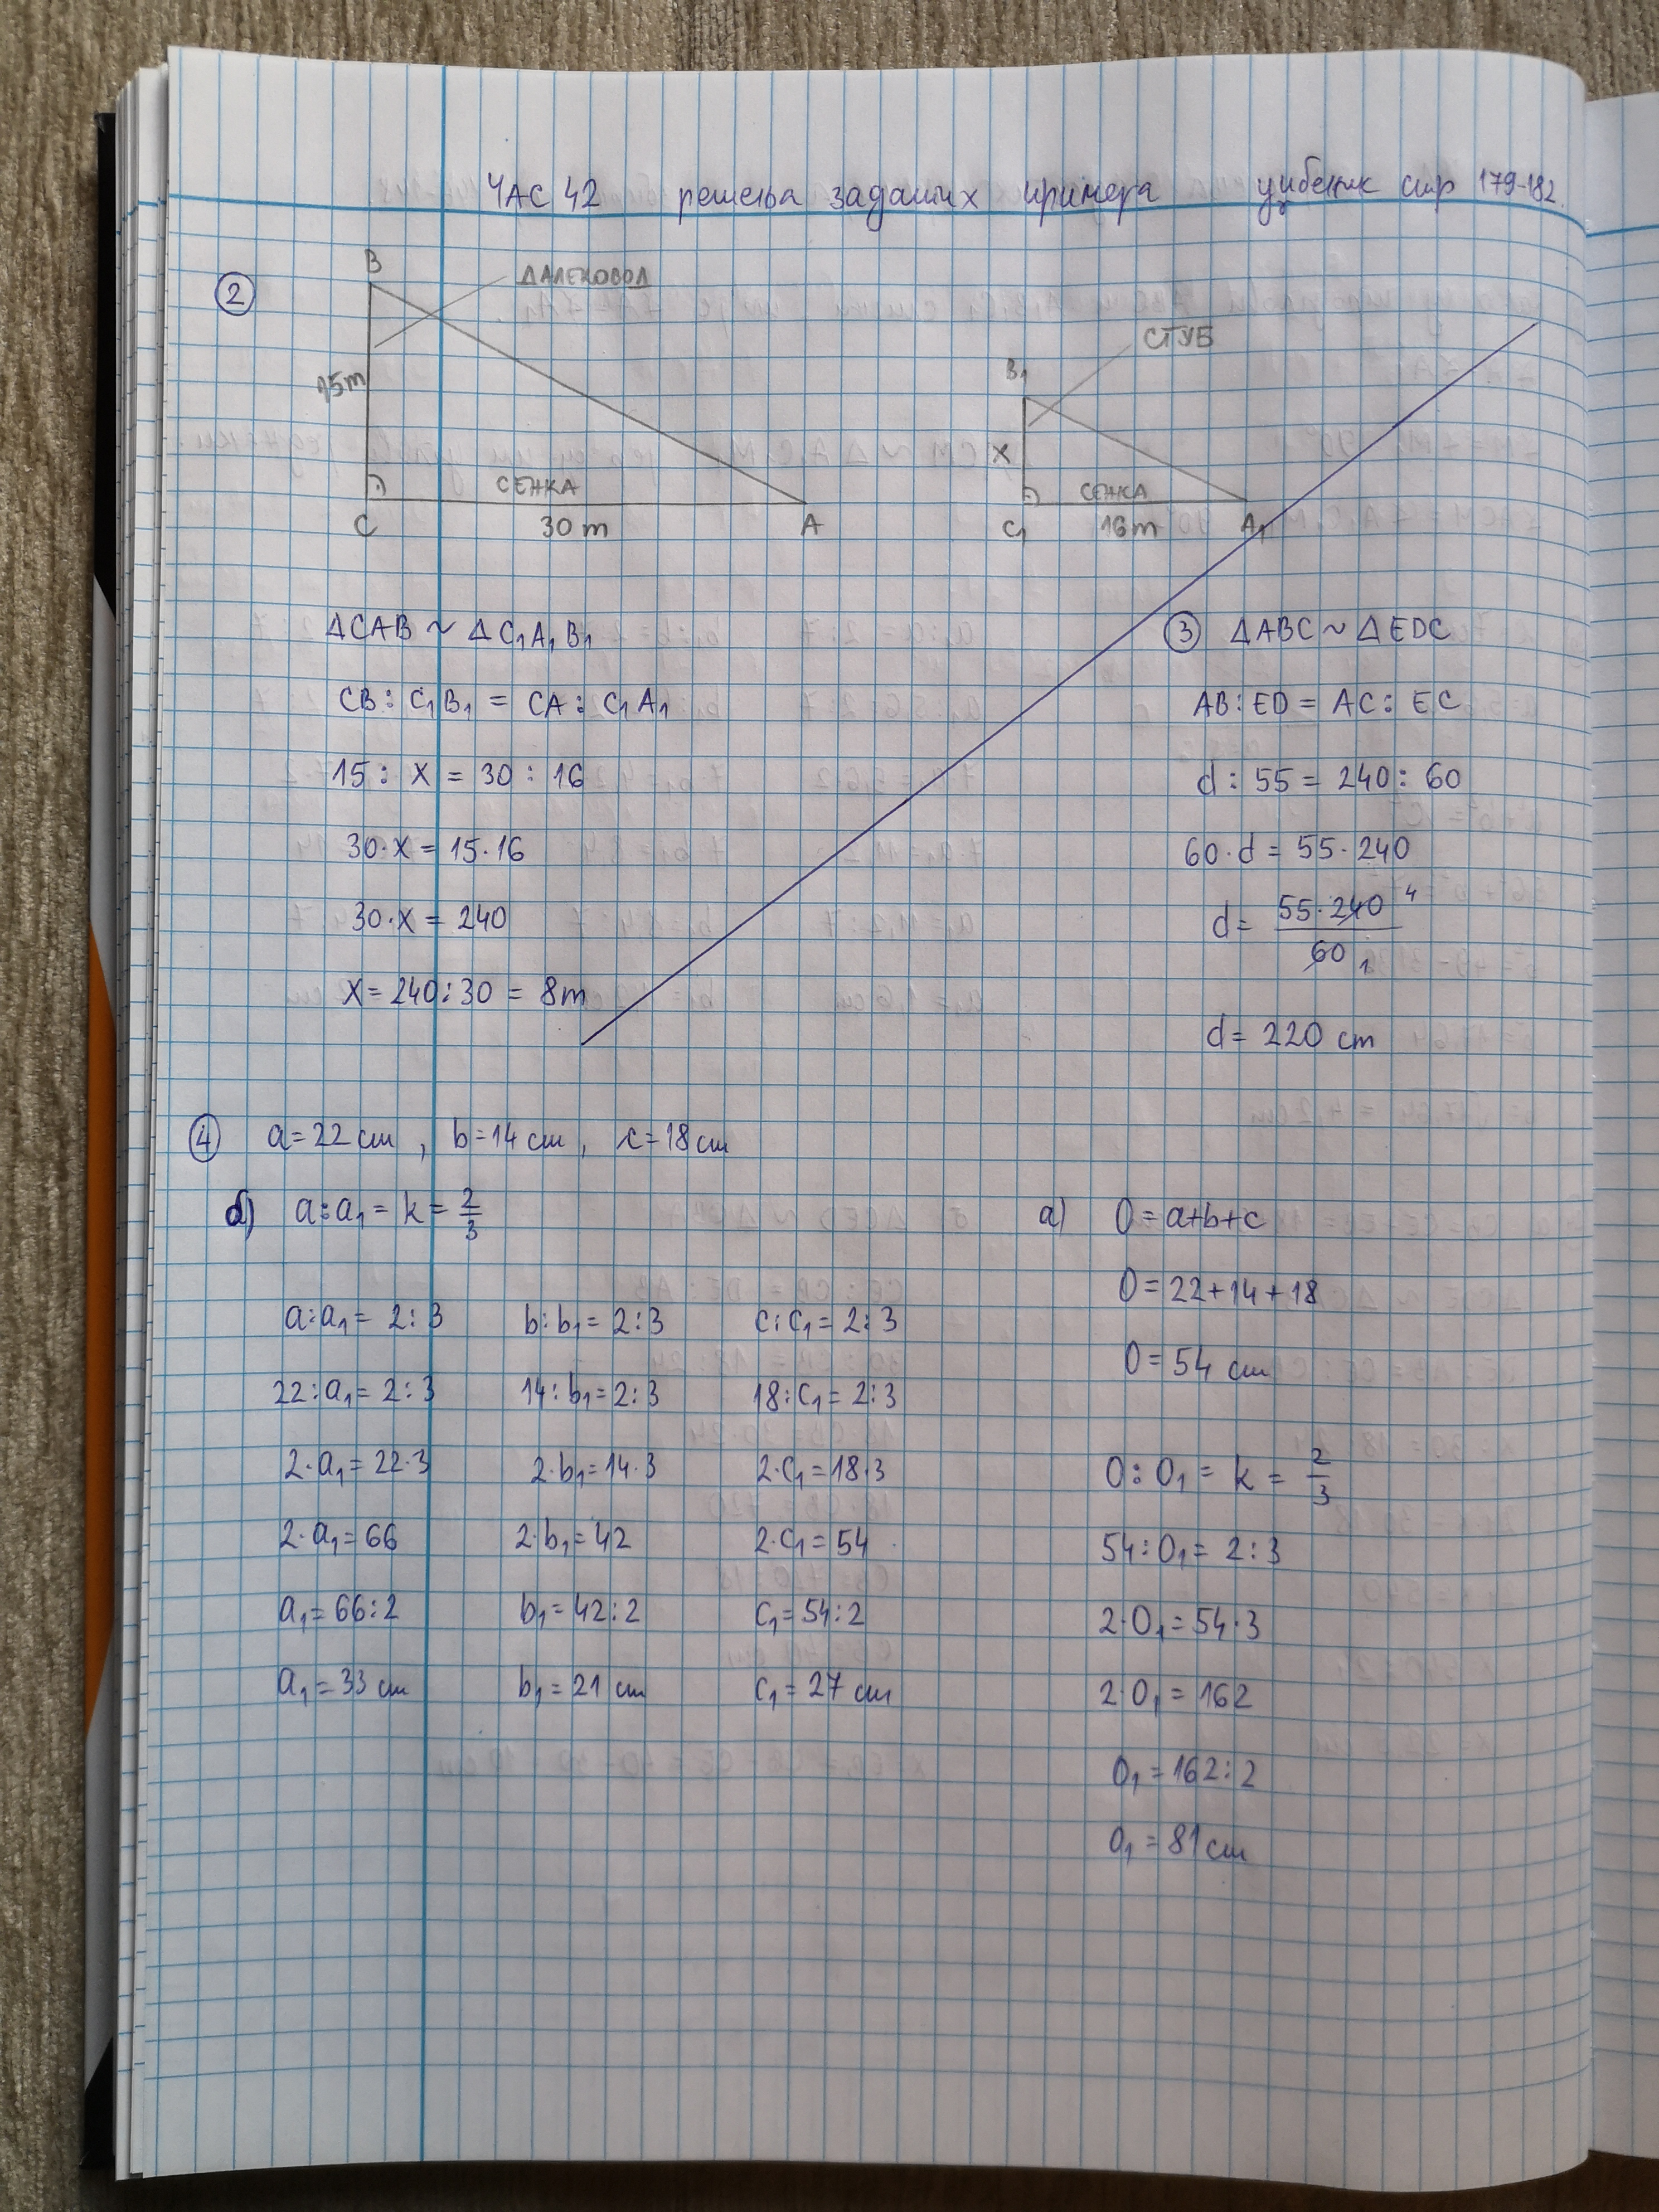 ЧАС 42 решења задатих примера уџбеник стр 179-182.
②
B
ДАЛЕКОВОД
15m
СЕНКА
C 30 m A
СТУБ
B₁
X
СЕНКА
C₁ 16m A₁
ΔCAB ~ ΔC₁A₁B₁
CB : C₁B₁ = CA : C₁A₁
15 : X = 30 : 16
30·X = 15·16
30·X = 240
X = 240:30 = 8m
③ ΔABC ~ ΔEDC
AB : ED = AC : EC
d : 55 = 240 : 60
60·d = 55·240
d = 55·240 4
60 1
d = 220 cm
④ a=22 cm , b=14 cm , c=18 cm
б) a:a₁ = k = 2/3
a:a₁ = 2:3 b:b₁ = 2:3 c:c₁ = 2:3
22:a₁ = 2:3 14:b₁ = 2:3 18:c₁ = 2:3
2·a₁ = 22·3 2·b₁ = 14·3 2·c₁ = 18·3
2·a₁ = 66 2·b₁ = 42 2·c₁ = 54
a₁ = 66:2 b₁ = 42:2 c₁ = 54:2
a₁ = 33 cm b₁ = 21 cm c₁ = 27 cm
а) O = a+b+c
O = 22+14+18
O = 54 cm
O : O₁ = k = 2/3
54 : O₁ = 2:3
2·O₁ = 54·3
2·O₁ = 162
O₁ = 162:2
O₁ = 81 cm